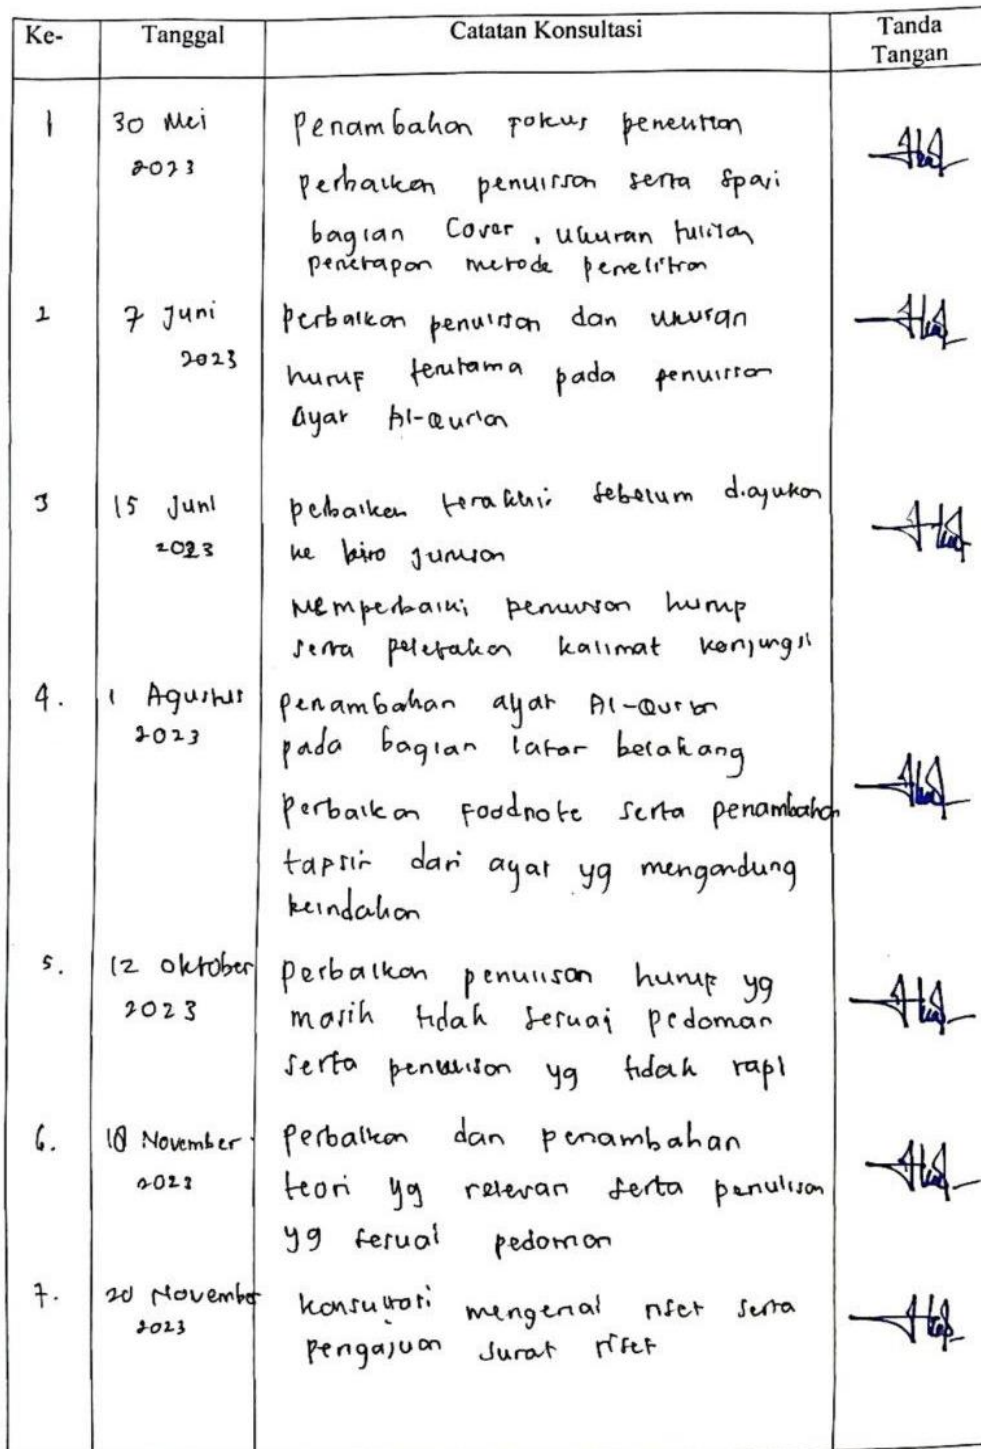 Ke- Tanggal Catatan Konsultasi Tanda Tangan
1 30 Mei 2023 Penambahan Fokus penelitian
perbaikan penulisan serta Spasi
bagian Cover, ukuran tulisan
penetapan metode penelitian
2 7 Juni 2023 Perbaikan penulisan dan ukuran
huruf terutama pada penulisan
Ayat Al-Qur'an
3 15 Juni 2023 perbaiken terakhir sebelum diajukan
ke biro jurusan
Memperbaiki penulisan hurup
serta peletakan kalimat konjungsi
4. 1 Agustus 2023 Penambahan ayat Al-Qur'an
pada bagian latar belakang
Perbaikan Foodnote serta penambahan
tapsir dari ayat yg mengandung
keindahan
5. 12 Oktober 2023 Perbaikan penulisan huruf yg
masih tidak sesuai pedoman
serta penulisan yg tidak rapi
6. November 2023 Perbaikan dan penambahan
teori yg relevan serta penulisan
yg sesuai pedoman
7. 20 November 2023 Konsultasi mengenai riset serta
Pengajuan surat riset